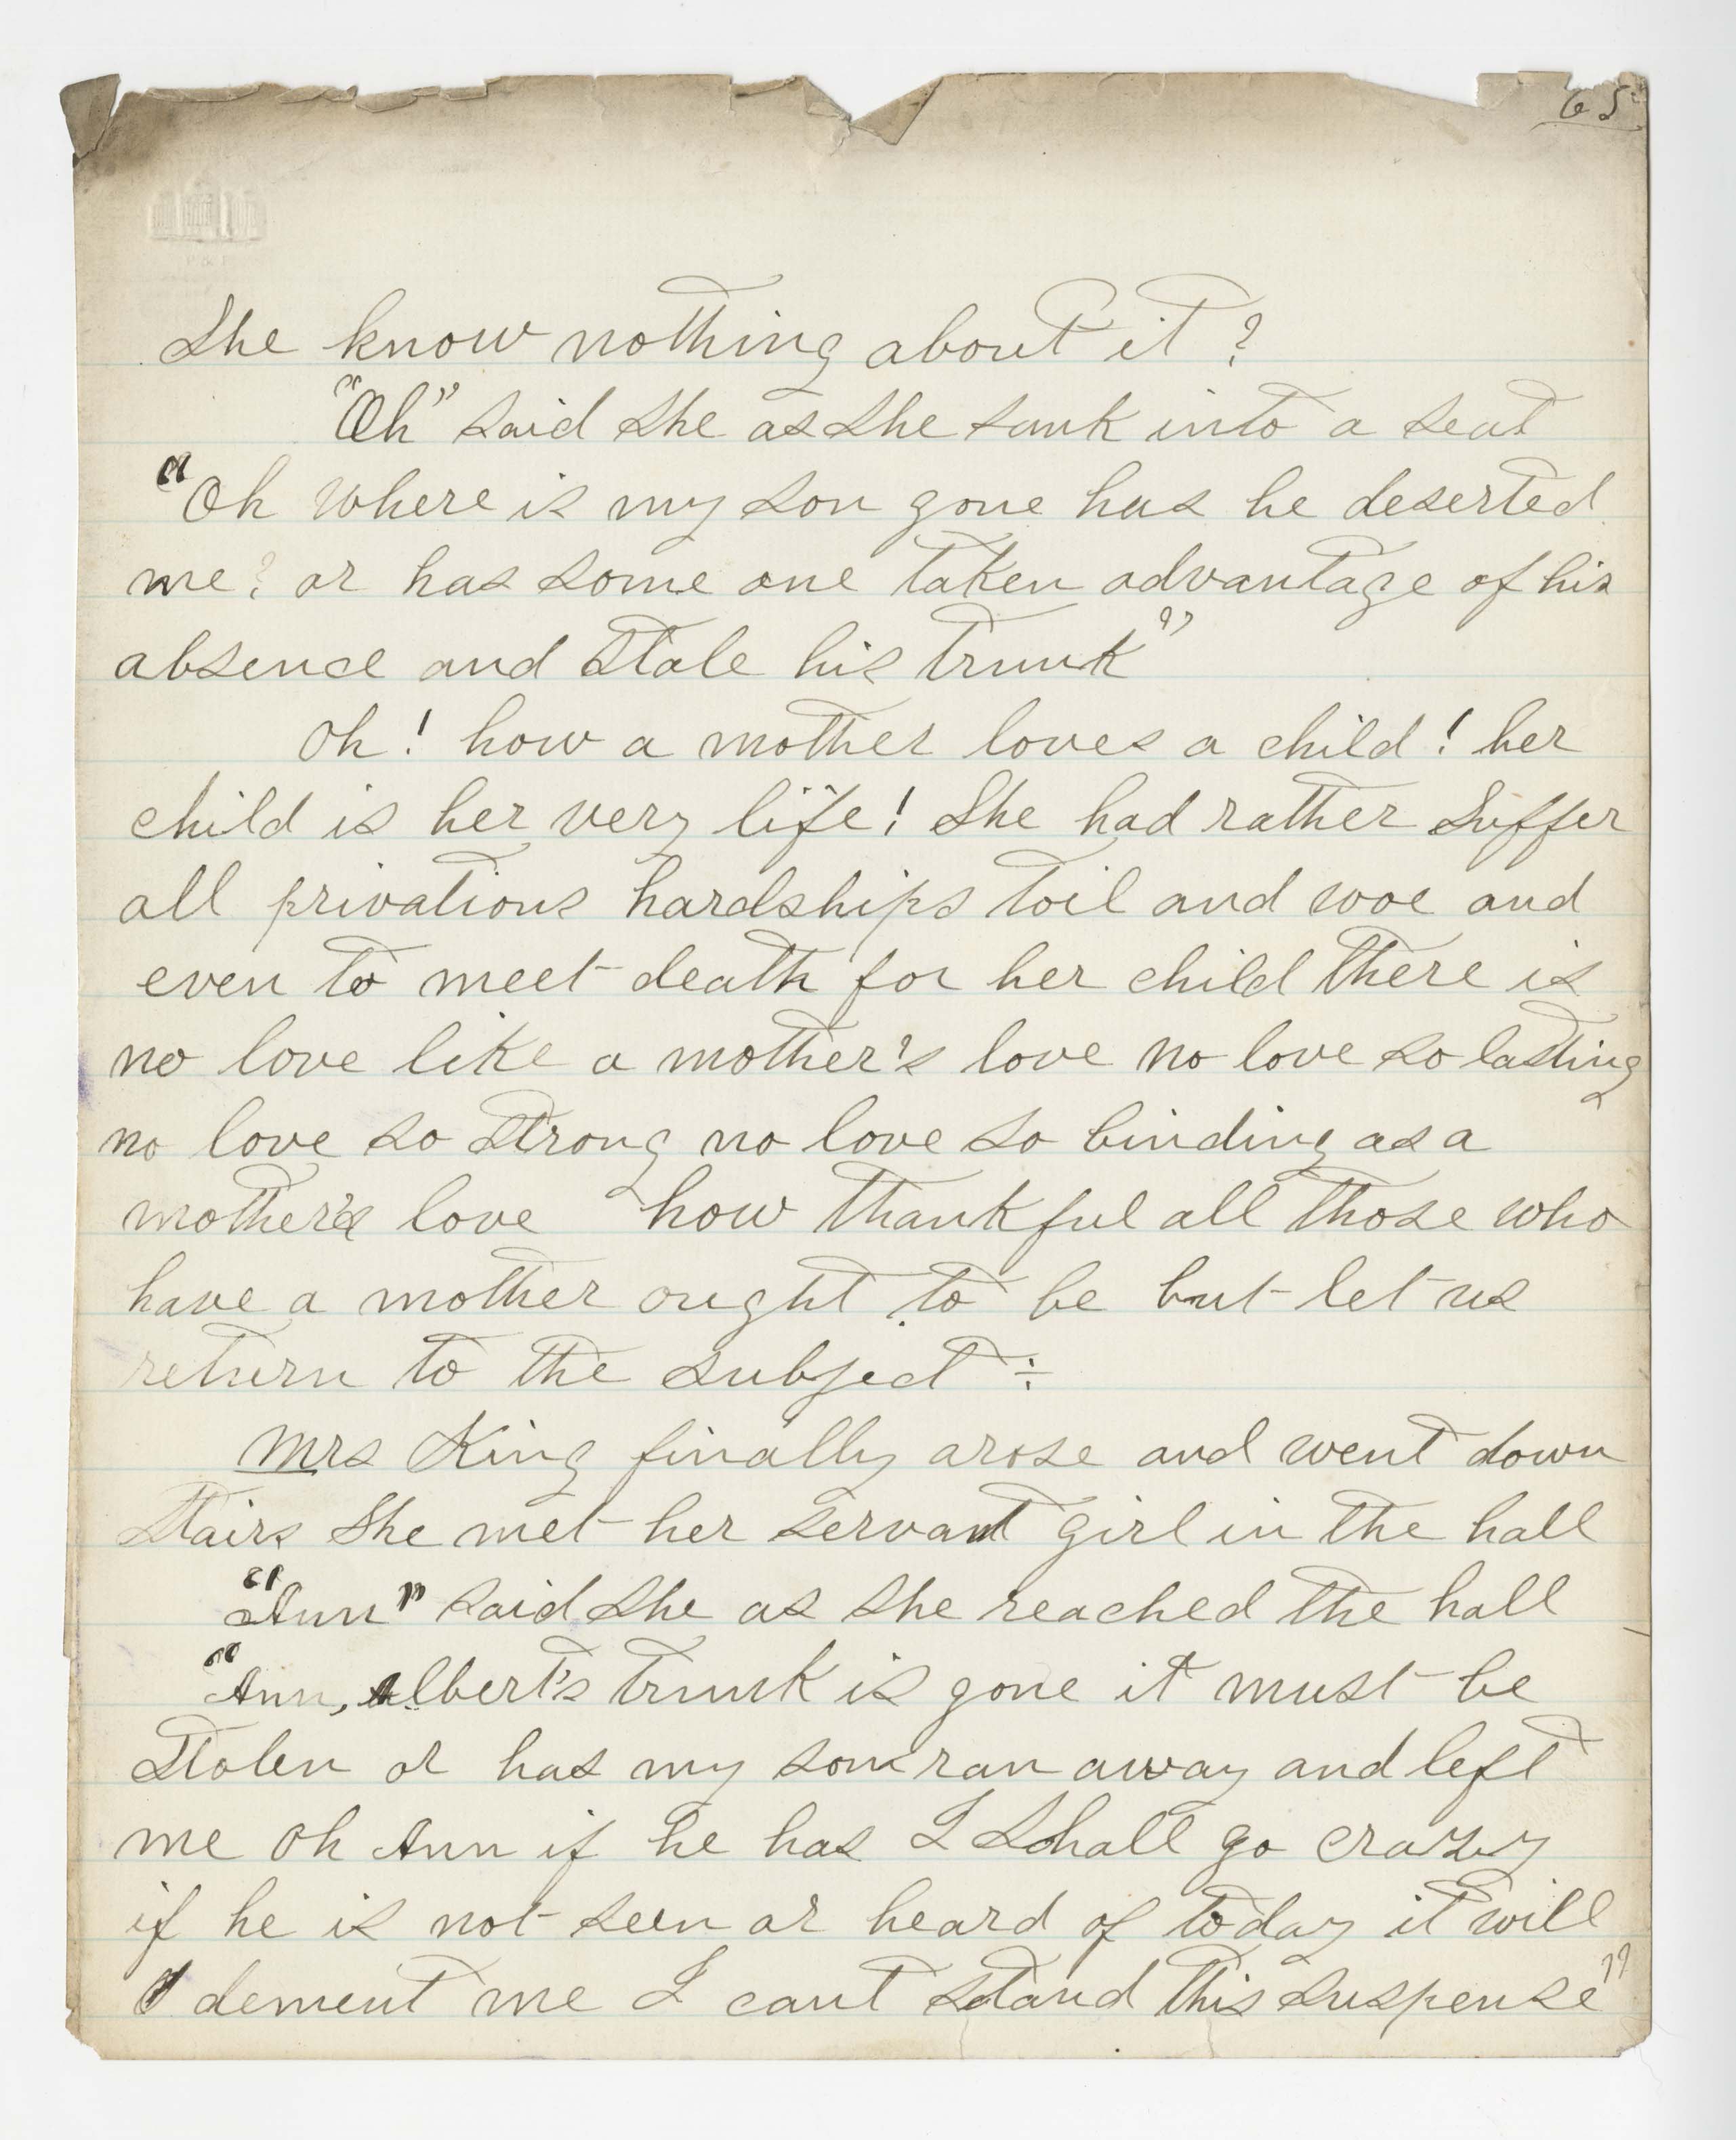 65
She know nothing about it?
"Oh" said she as she sank into a seat
"Oh where is my son gone has he deserted
me? or has some one taken advantage of his
absence and stole his trunk"
Oh! how a mother loves a child! her
child is her very life! She had rather suffer
all privations hardships toil and woe and
even to meet death for her child there is
no love like a mother's love no love so lasting
no love so strong no love so binding as a
mother's love how thankful all those who
have a mother ought to be but let us
return to the subject÷
Mrs King finally arose and went down
stairs She met her servant girl in the hall
"Ann" said she as she reached the hall
"Ann, Albert's trunk is gone it must be
stolen or has my son ran away and left
me Oh Ann if he has I shall go crazy
if he is not seen or heard of today it will
dement me I cant stand this suspense"